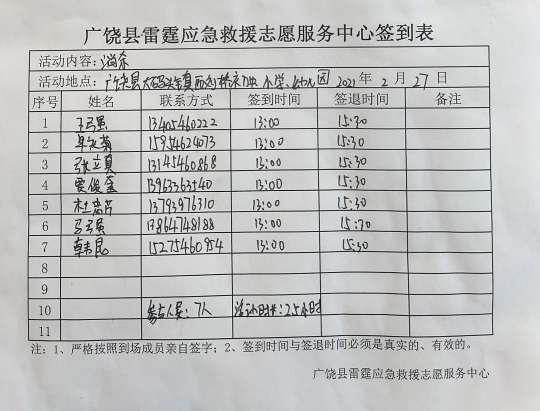 广饶县雷霆应急救援志愿服务中心签到表
活动内容：消杀
活动地点：广饶县大码头镇 小学、幼儿园 2021年2月27日
序号 姓名 联系方式 签到时间 签退时间 备注
1 13405460222 13:00 15:30
2 15954624073 13:00 15:30
3 张立真 13145460868 13:00 15:30
4 贾俊 13963363540 13:00 15:30
5 杜 13793976310 13:00 15:30
6 13864748188 13:00 15:30
7 韩 15275460954 13:00 15:30
8
9
10 参与人员：7人 活动时长：2.5小时
11
注：1、严格按照到场成员亲自签字；2、签到时间与签退时间必须是真实的、有效的。
广饶县雷霆应急救援志愿服务中心